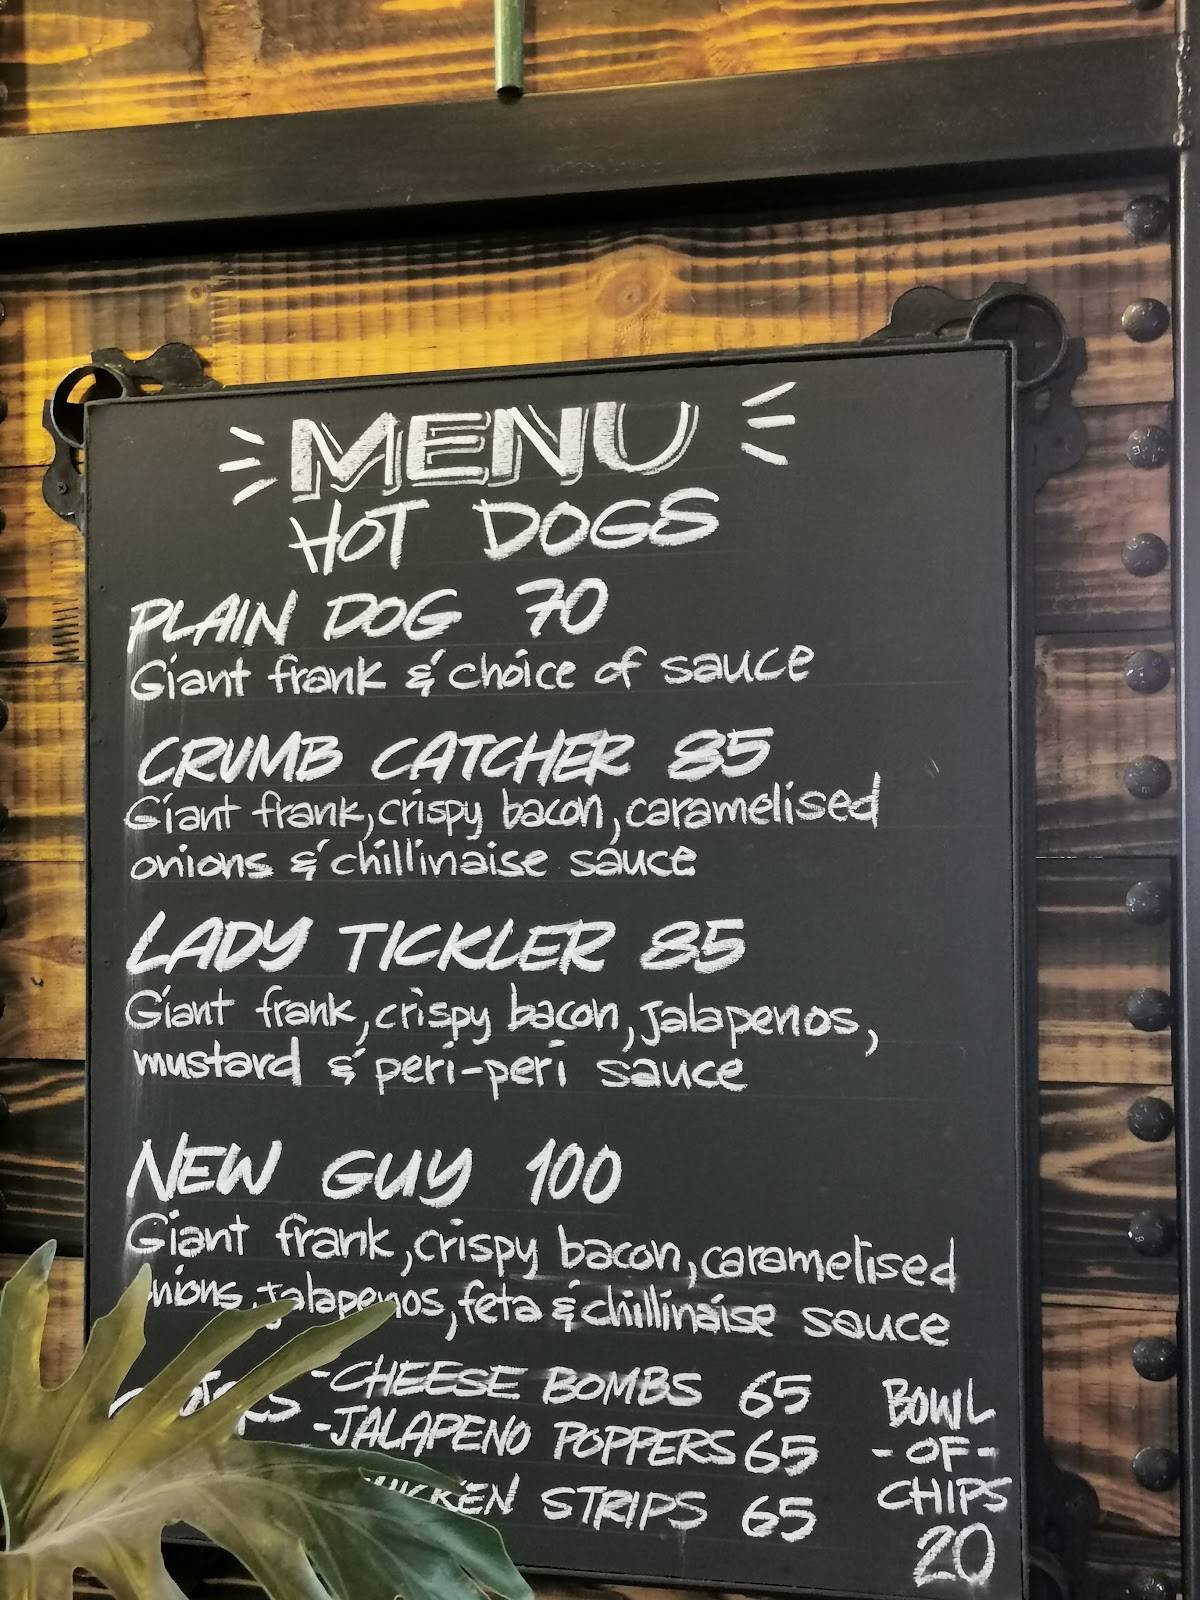 MENU
HOT DOGS
PLAIN DOG 70
Giant frank & choice of sauce
CRUMB CATCHER 85
Giant frank, crispy bacon, caramelised
onions & chillinaise sauce
LADY TICKLER 85
Giant frank, crispy bacon, jalapenos,
mustard & peri-peri sauce
NEW GUY 100
Giant frank, crispy bacon, caramelised
onions, jalapenos, feta & chillinaise sauce
-CHEESE BOMBS 65
-JALAPENO POPPERS 65
CHICKEN STRIPS 65
BOWL
-OF-
CHIPS
20